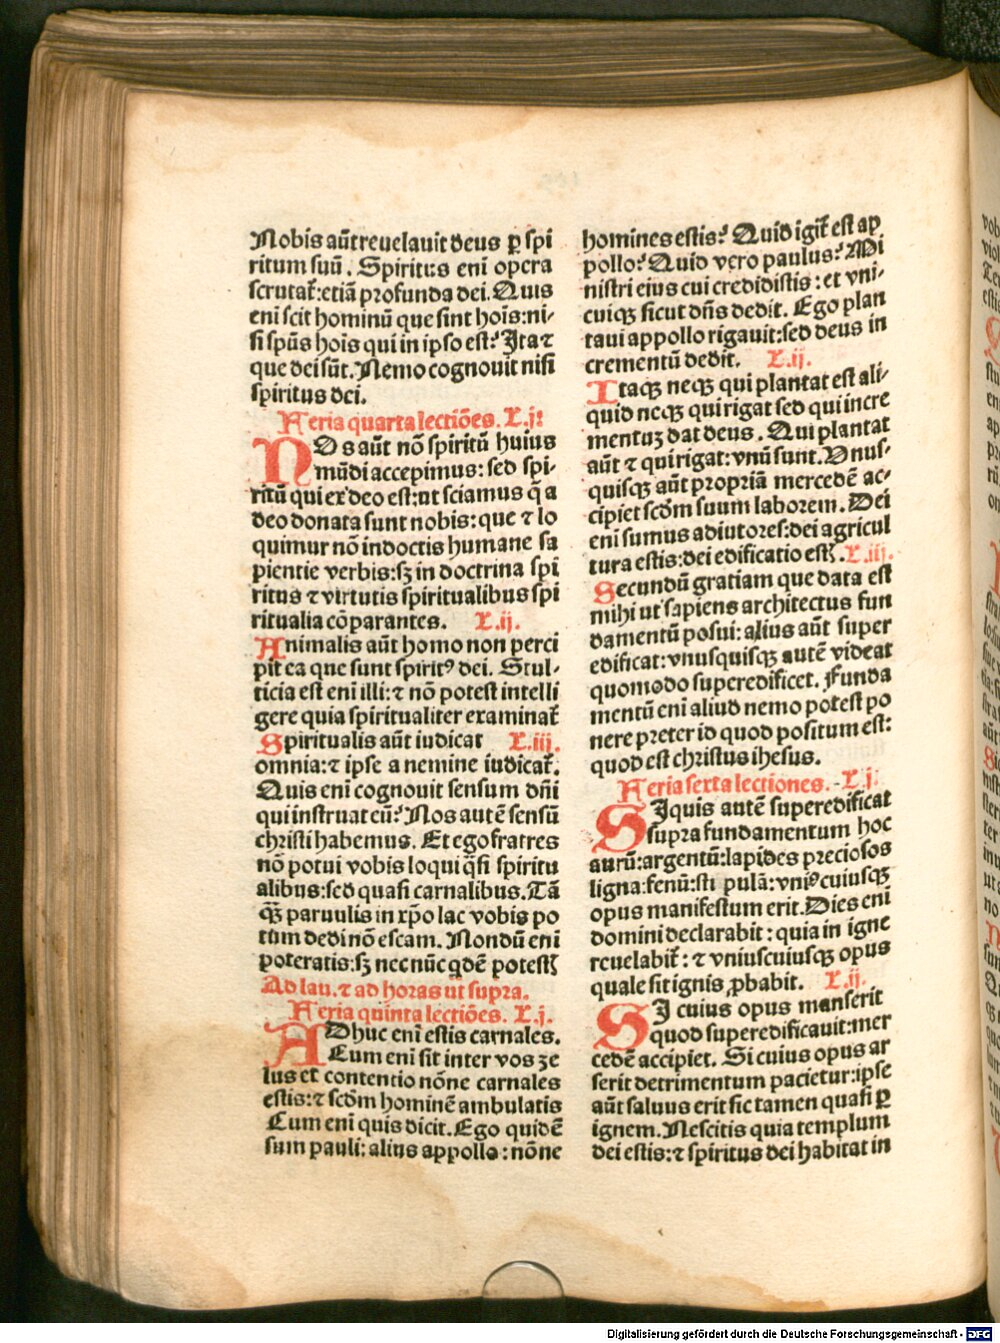 Nobis aūt reuelauit deus ꝑ spi
ritum suū. Spiritus eni opera
scrutat᷑: etiā profunda dei. Quis
eni scit hominū que sint hoīs: ni-
si spūs hoīs qui in ipso est? Ita ⁊
que dei sūt. Nemo cognouit nisi
spiritus dei.
Feria quarta lectiōes. L. j:
NOs aūt nō spiritū huius
mūdi accepimus: sed spi-
ritū qui ex deo est: ut sciamus q̄ a
deo donata sunt nobis: que ⁊ lo
quimur nō in doctis humane sa
pientie verbis: sꝫ in doctrina spi
ritus ⁊ virtutis spiritualibus spi
ritualia cōparantes. L. ij.
Animalis aūt homo non perci
pit ea que sunt spiritꝰ dei. Stul-
ticia est eni illi: ⁊ nō potest intelli
gere quia spiritualiter examinat᷑
Spiritualis aūt iudicat L. iij.
omnia: ⁊ ipse a nemine iudicat᷑.
Quis eni cognouit sensum dn̄i
qui instruat eū? Nos autē sensū
christi habemus. Et ego fratres
nō potui vobis loqui q̄si spiritu
alibus: sed quasi carnalibus. Tā
qꝫ paruulis in xp̄o lac vobis po
tum dedi nō escam. Nondū eni
poteratis: sꝫ nec nūc qdē potestꝭ
Ad lau. ⁊ ad horas ut supra.
Feria quinta lectiōes. L. j.
ADhuc eni estis carnales.
Cum eni sit inter vos ze
lus et contentio nōne carnales
estis: ⁊ scdm hominē ambulatis
Cum eni quis dicit. Ego quidē
sum pauli: alius appollo: nōne
homines estis? Quid igit᷑ est ap
pollo? Quid vero paulus? Mi
nistri eius cui credidistis: et vni-
cuiqꝫ sicut dn̄s dedit. Ego plan
taui appollo rigauit: sed deus in
crementū dedit. L. ij.
Itaqꝫ neqꝫ qui plantat est ali-
quid neqꝫ qui rigat sed qui incre
mentuꝫ dat deus. Qui plantat
aūt ⁊ qui rigat: vnū sunt. Vnus-
quisqꝫ aūt propriā mercedē ac-
cipiet scdm suum laborem. Dei
eni sumus adiutores: dei agricul
tura estis: dei edificatio estꝭ. L. iij.
Secundū gratiam que data est
mihi ut sapiens architectus fun
damentū posui: alius aūt super
edificat: vnusquisqꝫ autē videat
quomodo superedificet. Funda
mentū eni aliud nemo potest po
nere preter id quod positum est:
quod est christus ihesus.
Feria sexta lectiones. L j.
SIquis autē superedificat
supra fundamentum hoc
aurū: argentū: lapides preciosos
ligna: fenū: sti pulā: vniꝰcuiusqꝫ
opus manifestum erit. Dies eni
domini declarabit: quia in igne
reuelabit᷑: ⁊ vniuscuiusqꝫ opus
quale sit ignis ꝓbabit. L. ij.
SI cuius opus manserit
quod superedificauit: mer
cedē accipiet. Si cuius opus ar
serit detrimentum pacietur: ipse
aūt saluus erit sic tamen quasi ꝑ
ignem. Nescitis quia templum
dei estis: ⁊ spiritus dei habitat in
Digitalisierung gefördert durch die Deutsche Forschungsgemeinschaft - DFG